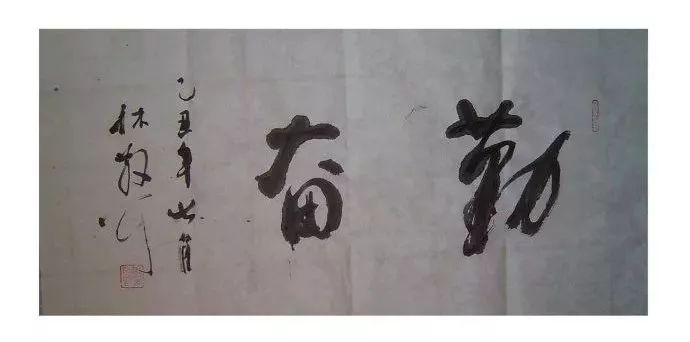 勤奋
乙丑年月
林散